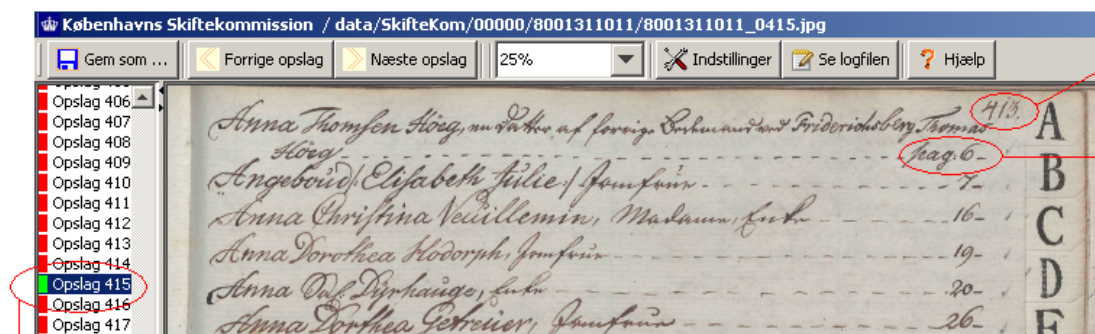 Københavns Skiftekommission / data/SkifteKom/00000/8001311011/8001311011_0415.jpg
Gem som ...
Forrige opslag
Næste opslag
25%
Indstillinger
Se logfilen
Hjælp
Opslag 406
Opslag 407
Opslag 408
Opslag 409
Opslag 410
Opslag 411
Opslag 412
Opslag 413
Opslag 414
Opslag 415
Opslag 416
Opslag 417
413.
Anna Thomsen Höeg, en Datter af forrige Bedemand ved Friderichsberg Thomas
Höeg - - - pag: 6-
Angeboud /: Elisabeth Julie :/ Jomfrue - - - 7-
Anna Christina Veuillemin, Madame, Enke - - - 16-
Anna Dorothea Hodorph, Jomfrue - - - 19-
Anna Sal. Dyrhauge, Enke - - - 20-
Anna Dorthea Getreuer, Jomfrue - - - 26-
A
B
C
D
E